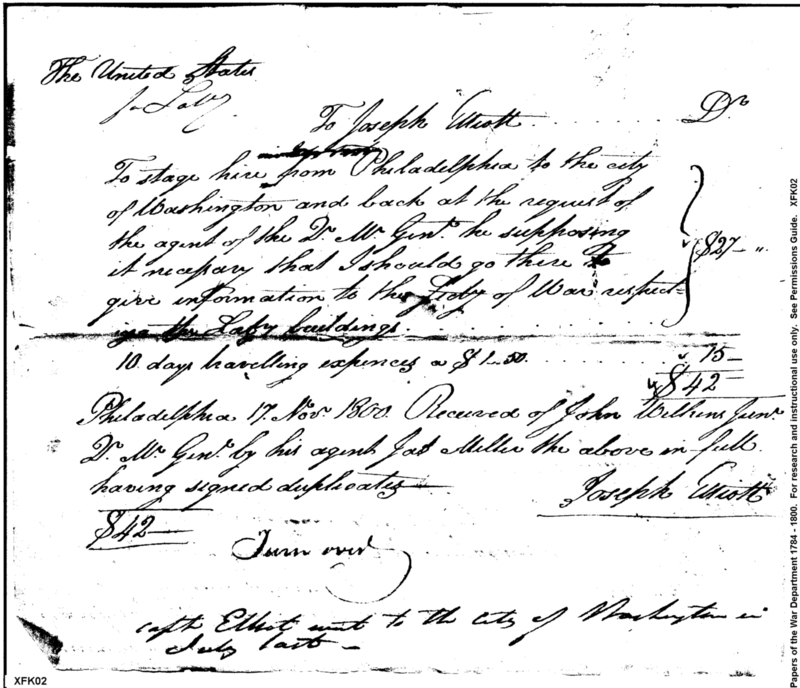 The United States
for Laby
To Joseph Elliott . . . . . . . . . . Dr
To stage hire from Philadelphia to the city
of Washington and back at the request of
the agent of the Qr. Mr. Genl. he supposing
it necessary that I should go there to
give information to the Secty of War respect-
ing the Laby buildings . . . . . . . . . . $27 "
10 days travelling expences a $1.50 . . . . . . 15—
$42—
Philadelphia 17. Novr. 1800. Received of John Wilkins Junr.
Qr. Mr. Genl. by his agent Jas Miller the above in full
having signed duplicates—
Joseph Elliott
$42—
Turn over
Capth Elliot went to the City of Washington in
July last—
XFK02
Papers of the War Department 1784 - 1800. For research and instructional use only. See Permissions Guide. XFK02